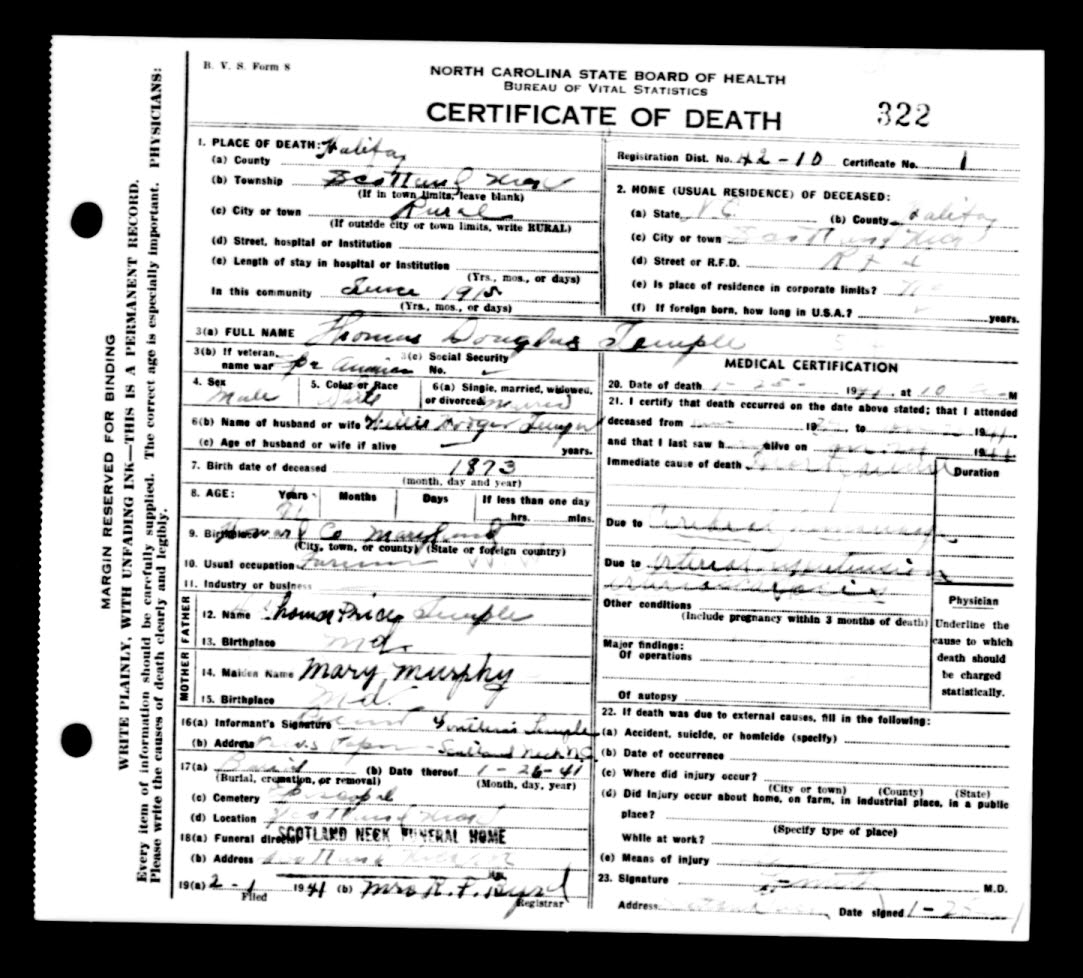 B. V. S. Form 8
NORTH CAROLINA STATE BOARD OF HEALTH
BUREAU OF VITAL STATISTICS
CERTIFICATE OF DEATH
322
MARGIN RESERVED FOR BINDING
WRITE PLAINLY, WITH UNFADING INK—THIS IS A PERMANENT RECORD.
Every item of information should be carefully supplied. The correct age is especially important. PHYSICIANS:
Please write the causes of death clearly and legibly.
1. PLACE OF DEATH:
(a) County Halifax
(b) Township Scotland Neck
(If in town limits, leave blank)
(c) City or town Rural
(If outside city or town limits, write RURAL)
(d) Street, hospital or Institution
(e) Length of stay in hospital or Institution
(Yrs., mos., or days)
In this community Since 1915
(Yrs., mos., or days)
Registration Dist. No. 42-10 Certificate No. 1
2. HOME (USUAL RESIDENCE) OF DECEASED:
(a) State N.C. (b) County Halifax
(c) City or town Scotland Neck
(d) Street or R.F.D.
(e) Is place of residence in corporate limits?
(f) If foreign born, how long in U.S.A.? years.
3(a) FULL NAME Thomas Douglas Temple
3(b) If veteran, name war 3(c) Social Security No.
4. Sex Male
5. Color or Race
6(a) Single, married, widowed, or divorced
6(b) Name of husband or wife
(c) Age of husband or wife if alive years.
7. Birth date of deceased 1873
(month, day and year)
8. AGE: Years Months Days If less than one day
hrs. mins.
9. Birthplace Howard Co Maryland
(City, town, or county) (State or foreign country)
10. Usual occupation Farmer
11. Industry or business
FATHER
12. Name Thomas Price Temple
13. Birthplace Md.
MOTHER
14. Maiden Name Mary Murphy
15. Birthplace Md.
16(a) Informant's Signature Temple
(b) Address Scotland Neck N.C.
17(a) Burial (b) Date thereof 1-26-41
(Burial, cremation, or removal) (Month, day, year)
(c) Cemetery Episcopal
(d) Location Scotland Neck
18(a) Funeral director SCOTLAND NECK FUNERAL HOME
(b) Address
19(a) 2-1 1941 (b) Mrs R. F.
Filed Registrar
MEDICAL CERTIFICATION
20. Date of death 1-25- 1941, at 10 M
21. I certify that death occurred on the date above stated; that I attended
deceased from 19 , to 1941.
and that I last saw h alive on 1941
Immediate cause of death
Duration
Due to Cerebral
Due to Arterial hypertension
Other conditions
(Include pregnancy within 3 months of death)
Major findings:
Of operations
Of autopsy
Physician
Underline the
cause to which
death should
be charged
statistically.
22. If death was due to external causes, fill in the following:
(a) Accident, suicide, or homicide (specify)
(b) Date of occurrence
(c) Where did injury occur?
(City or town) (County) (State)
(d) Did injury occur about home, on farm, in industrial place, in a public
place?
(Specify type of place)
While at work?
(e) Means of injury
23. Signature M.D.
Address Date signed 1-25